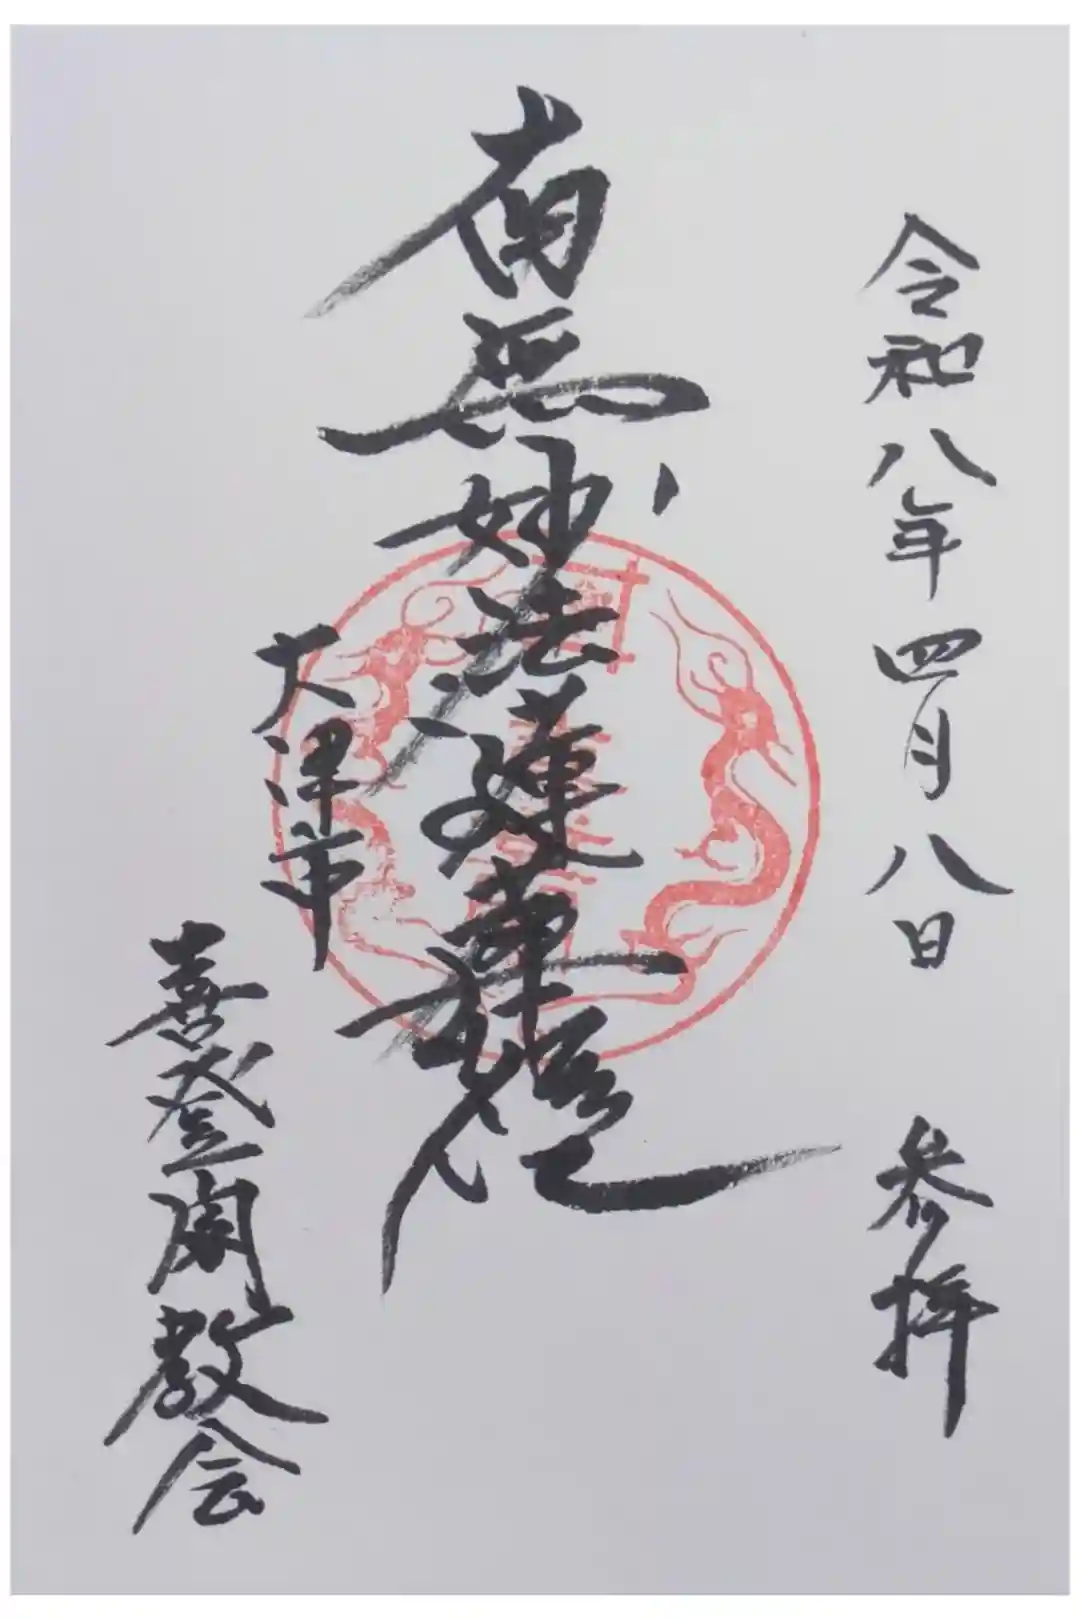 令和八年四月八日 参拝
南無妙法蓮華経
大津市
喜登開教会